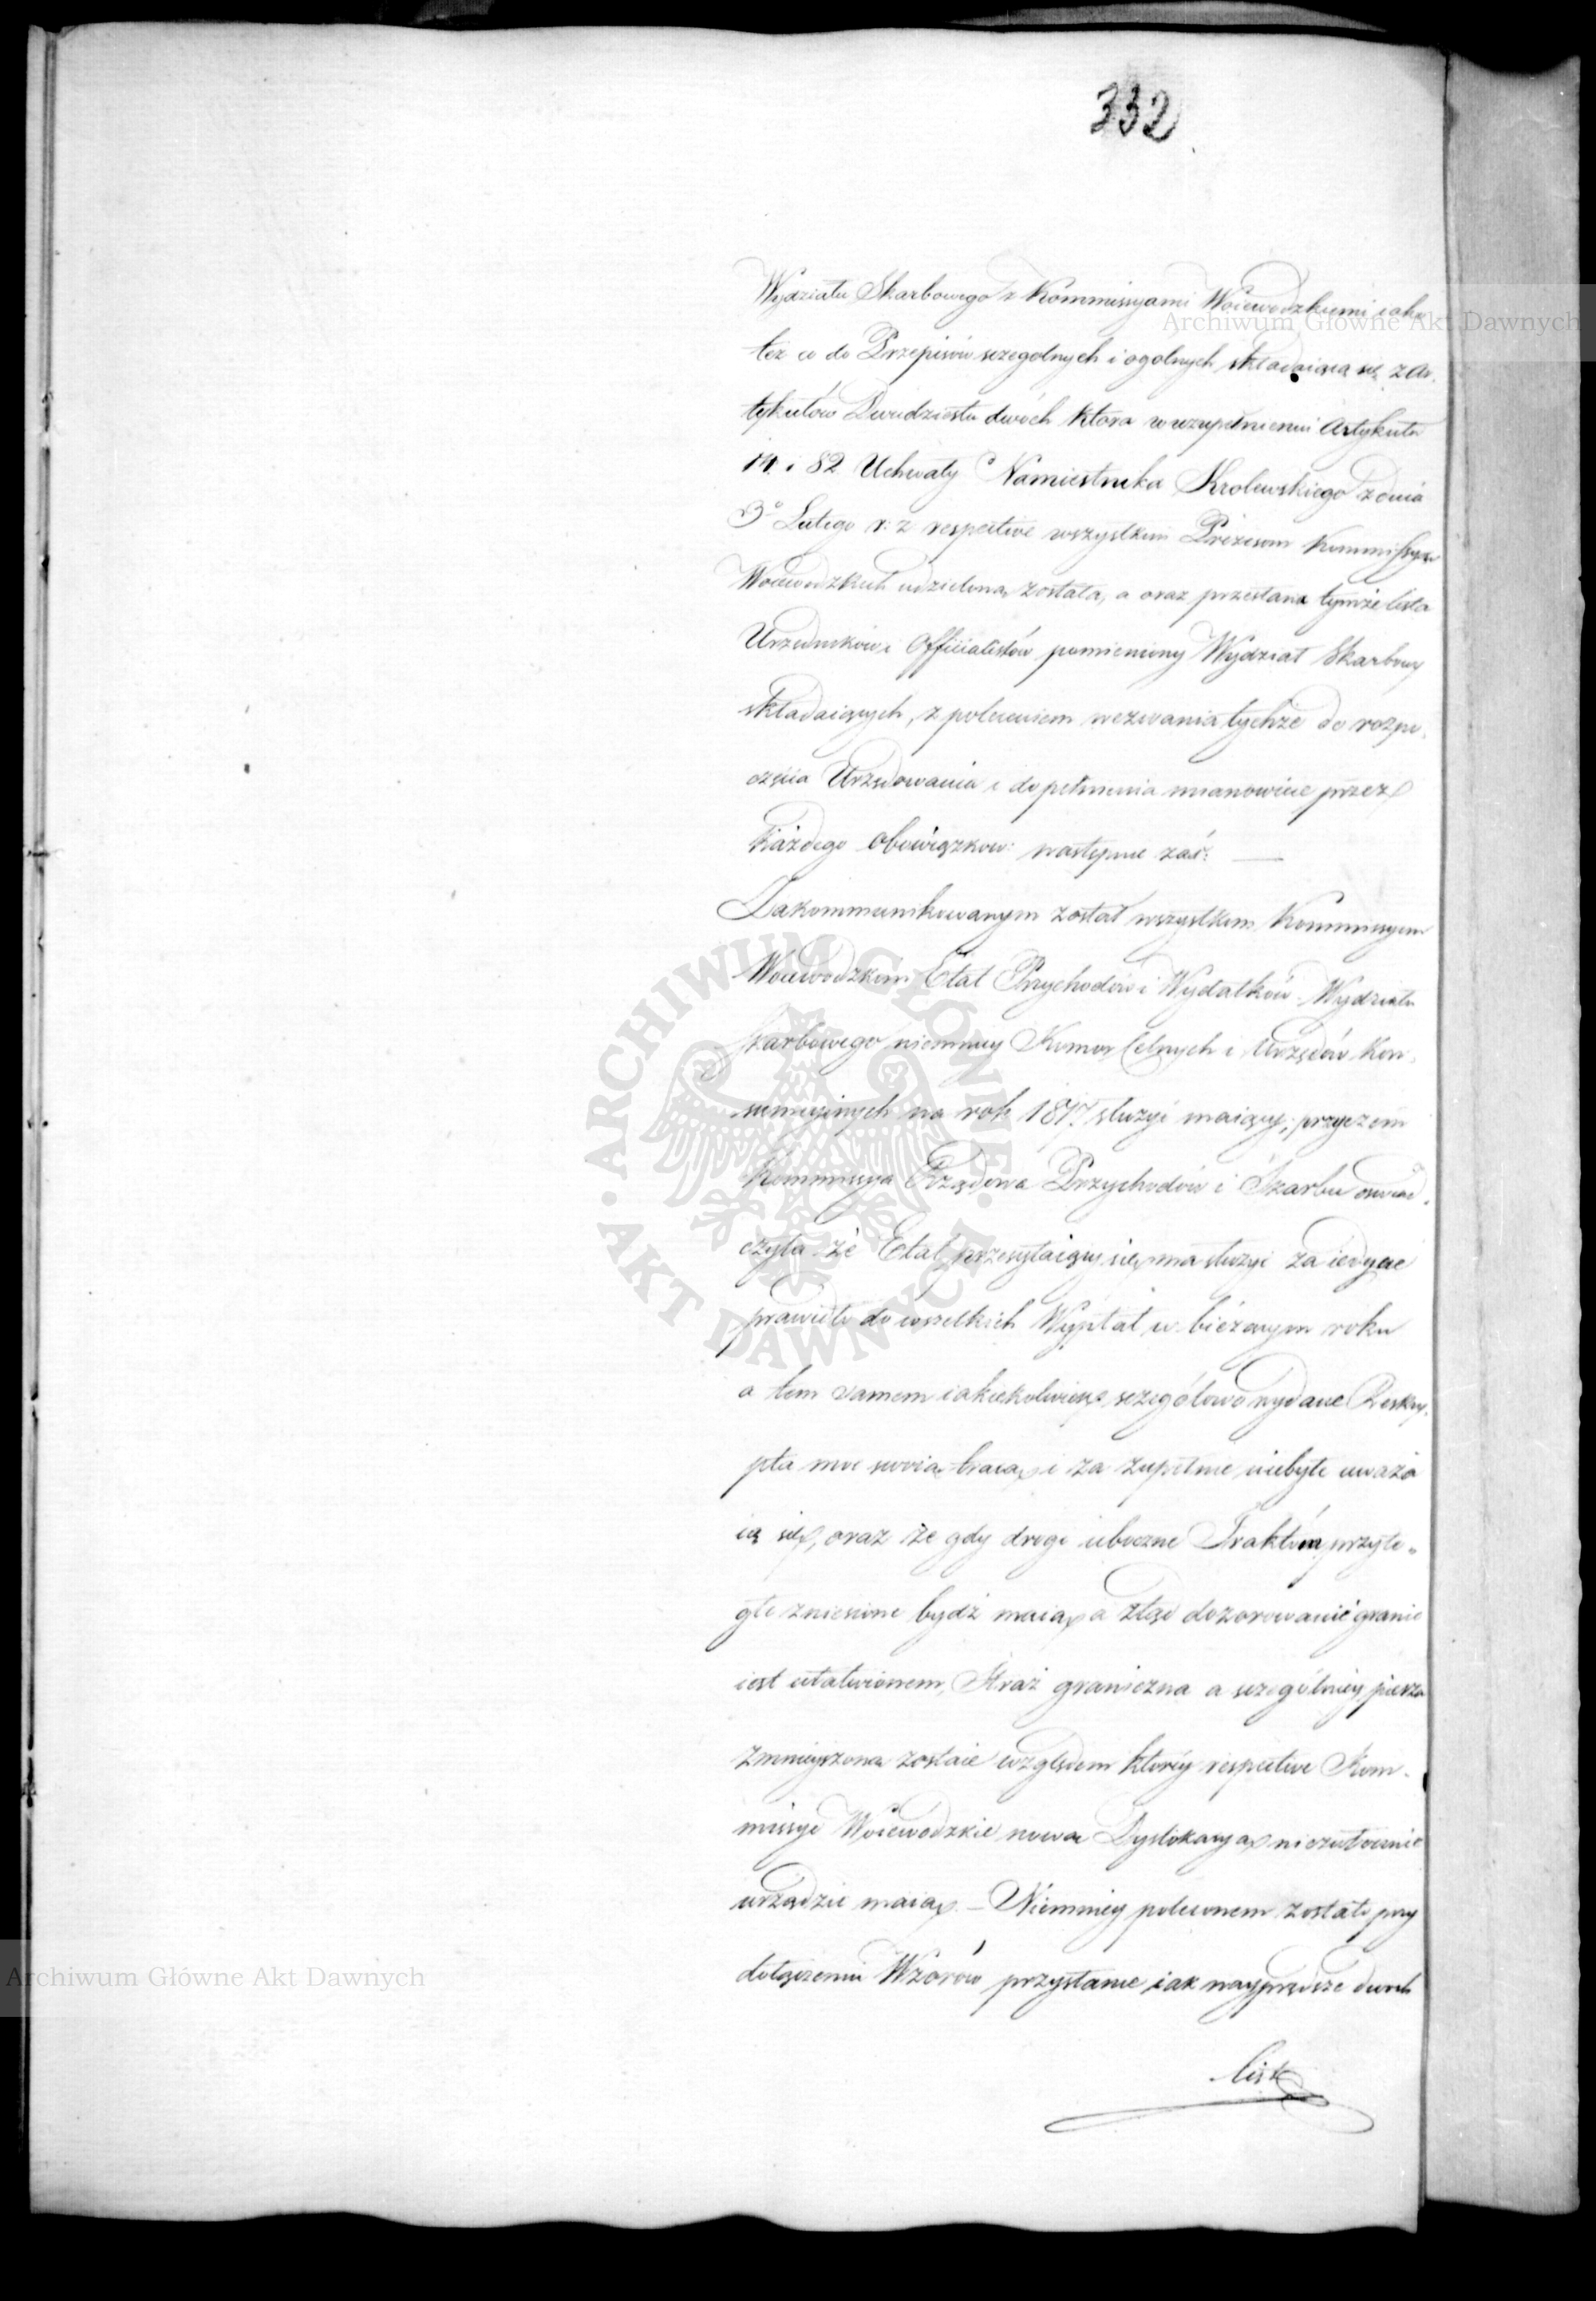 332
Wydziału Skarbowego z Kommissyami Woiewodzkiemi iako
też co do Przepisów szczegolnych i ogolnych składaiąca się z Ar-
tykułów Dwudziestu dwóch która w uzupełnieniu Artykułu
14. i 82 Uchwały Namiestnika Krolewskiego z dnia
3º Lutego r: z respective wszystkim Prezesom Kommissyów
Woiewodzkich udzieloną została, a oraz przesłana tymże lista
Urzędników i Officialistów pomieniony Wydział Skarbowy
składaiących, z poleceniem wezwania tychże do rozpo-
częcia Urzędowania i dopełnienia mianowicie przez
każdego obowiązkow: następnie zaś: —
Zakommunikowanym został wszystkim Kommissyom
Woiewodzkim Etat Przychodów i Wydatków Wydziału
Skarbowego niemniey Komor Celnych i Urzędów Kon-
sumcyinych na rok 1817. służyć maiący; przyczem
Kommissya Rządowa Przychodów i Skarbu oswiad-
czyła że Etat przesyłaiący się ma służyć za iedyne
prawidło do wszelkich Wypłat w bieżącym roku
a tem samem iakiekolwiek szczegółowo wydane Reskry-
pta moc swoią tracą i za zupełnie niebyłe uważa
ią się, oraz że gdy drogi uboczne Traktów przyle-
głe zniesione bydź maią a ztąd dozorowanie granic
iest ułatwionem, Straż graniczna a szczególniey piesza
zmnieyszona zostaie względem którey respective Kom-
missye Woiewodzkie nową Dyslokacyą niezwłocznie
urządzić maią. — Niemniey poleconem zostało przy
dołączeniu Wzorów przysłanie iak nayprędsze dwoch
List
Archiwum Główne Akt Dawnych
Archiwum Główne Akt Dawnych
ARCHIWUM GŁÓWNE AKT DAWNYCH